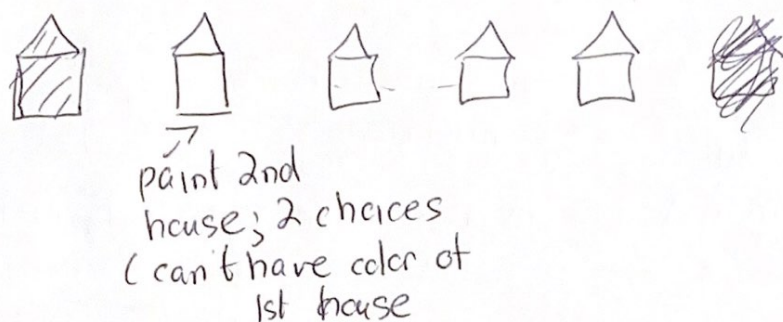 paint 2nd
house; 2 choices
(can't have color of
1st house